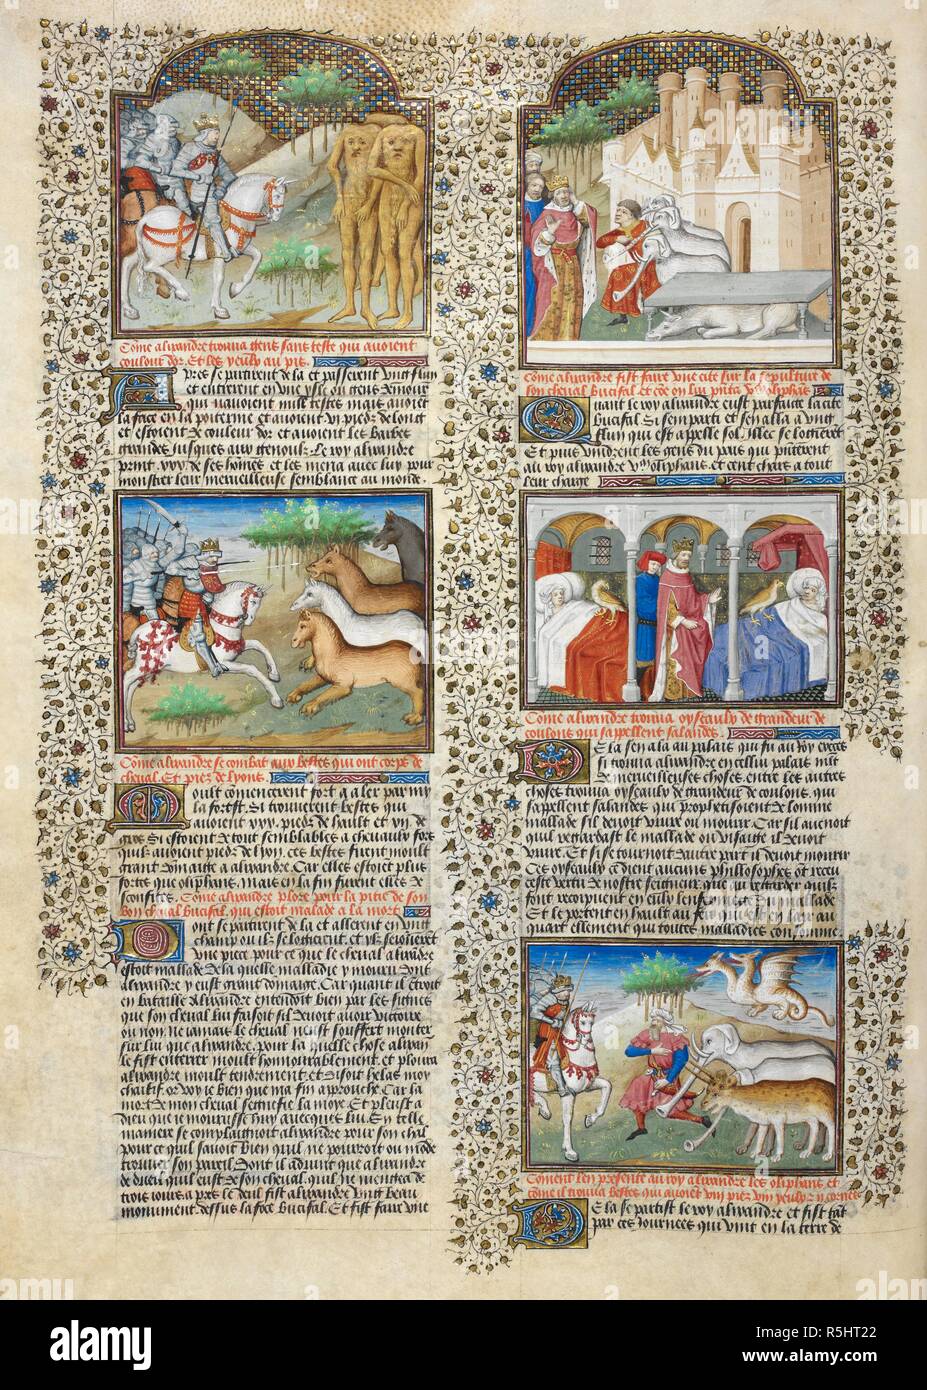 Cõme alixandre trouva gens sans teste qui avoient
coulour dor. Et les yeulx au pis.
Apres se partirent de la et passerent ung flun
et entrerent en une ysle ou gens demour
qui navoient mille testes mais avoiet
la face en la poiterine et avoient vi piedz de long
et estoient de couleur dor et avoient les barbes
grandes jusques aux genoulx. Le roy alixandre
print xxx. de ses hõmes et les mena avec luy pour
monstrer leur merveilleuse semblance au monde
Cõme alixandre se combat aux bestes qui ont corps de
cheval. Et piez de lyons.
Moult cõmencerent fort a aler par my
la forest. Si trouverent bestes qui
avoient xxx. piedz de hault et xii. de
gros Si estoient de tout semblables a chevaulx fors
quilz avoient piedz de lyon. ces bestes firent moult
grant dõmaige a alixandre. Car elles estoiet plus
fortes que oliphans, Mais en la fin furent elles de
sconfites. Cõme alixandre plore pour la pitie de son
bon cheval bucifal. qui estoit malade a la mort
Dont se partirent de la et allerent en ung
champ ou ilz se logierent. et
piece pour ce que le cheval alixandre
estoit mallade de la quelle malladie y mouru dont
alixandre y eust grant dõmaige. Car quant il estoit
en bataille Alixandre entendoit bien par les signes
que son cheval lui faisoit sil devoit avoir victoire
ou non. ne iamais le cheval neust souffert monter
sur lui que alixandre. pour la quelle chose alixan
le fist enterrer moult honnourablement. et ploura
alixandre moult tendrement et disoit helas moy
chaitif. or voy ie bien que ma fin aprouche. Car la
mort de mon cheval segnefie la moye. Et pleust a
dieu que ie mourusse huy avecques lui. En telle
maniere se complaignoit alixandre pour son chal
pour ce quil savoit bien quil ne pourroit ou mõde
trouver son pareil. dont il advint que alixandre
de dueil quil eust de son cheval. quil ne mengea de
trois iours apres le deul fist alixandre ung beau
monument dessus la fosse bucifal. Et fist faire une
Cõme alixandre fist faire une cite sur la sepulture de
son cheval bucifal et cõe on luy pnta vᶜ oliphans
Quant le roy alixandre eust parfaicte la cite
bucifal. Si sen parti et sen alla a ung
flun qui est appelle sol. illec se logierent
Et puis vindrent les gens du pais qui pñterent
au roy alixandre vᶜ oliphans. et cent chars a tout
leur charge
Cõme alixandre trouva oyseaulx de grandeur de
coulons qui sappellent salandes.
De la sen ala au palais qui fu au roy exces
si trouva alixandre en cellui palais mlt
de merveilleuses choses. entre les autres
choses trouva oyseaulx de grandeur de coulons, qui
sappellent salandes. qui prophetisoient de lomme
mallade sil devoit vivre ou mourir. Car sil avenoit
quil regardast le mallade ou visaige il devoit
vivre. Et si se tournoit dautre part il devoit mourir
Ces oyseaulx ce dient aucuns philosophes õt receu
ceste vertu de nostre seigneur. que au regarder quilz
font recoipvent en eulx lenfermete du mallade
Et le portent en hault au feu qui est en lair au
quart ellement qui toutes malladies consomme.
Coment len presente au roy alixandre les oliphans. et
cõme il trouva bestes qui avoiet viii piez viii yeulx ii cornes
De la se partist le roy alixandre et fist tãt
par ces journees qui vint en la terre de
alamy
Image ID: R5HT22
www.alamy.com